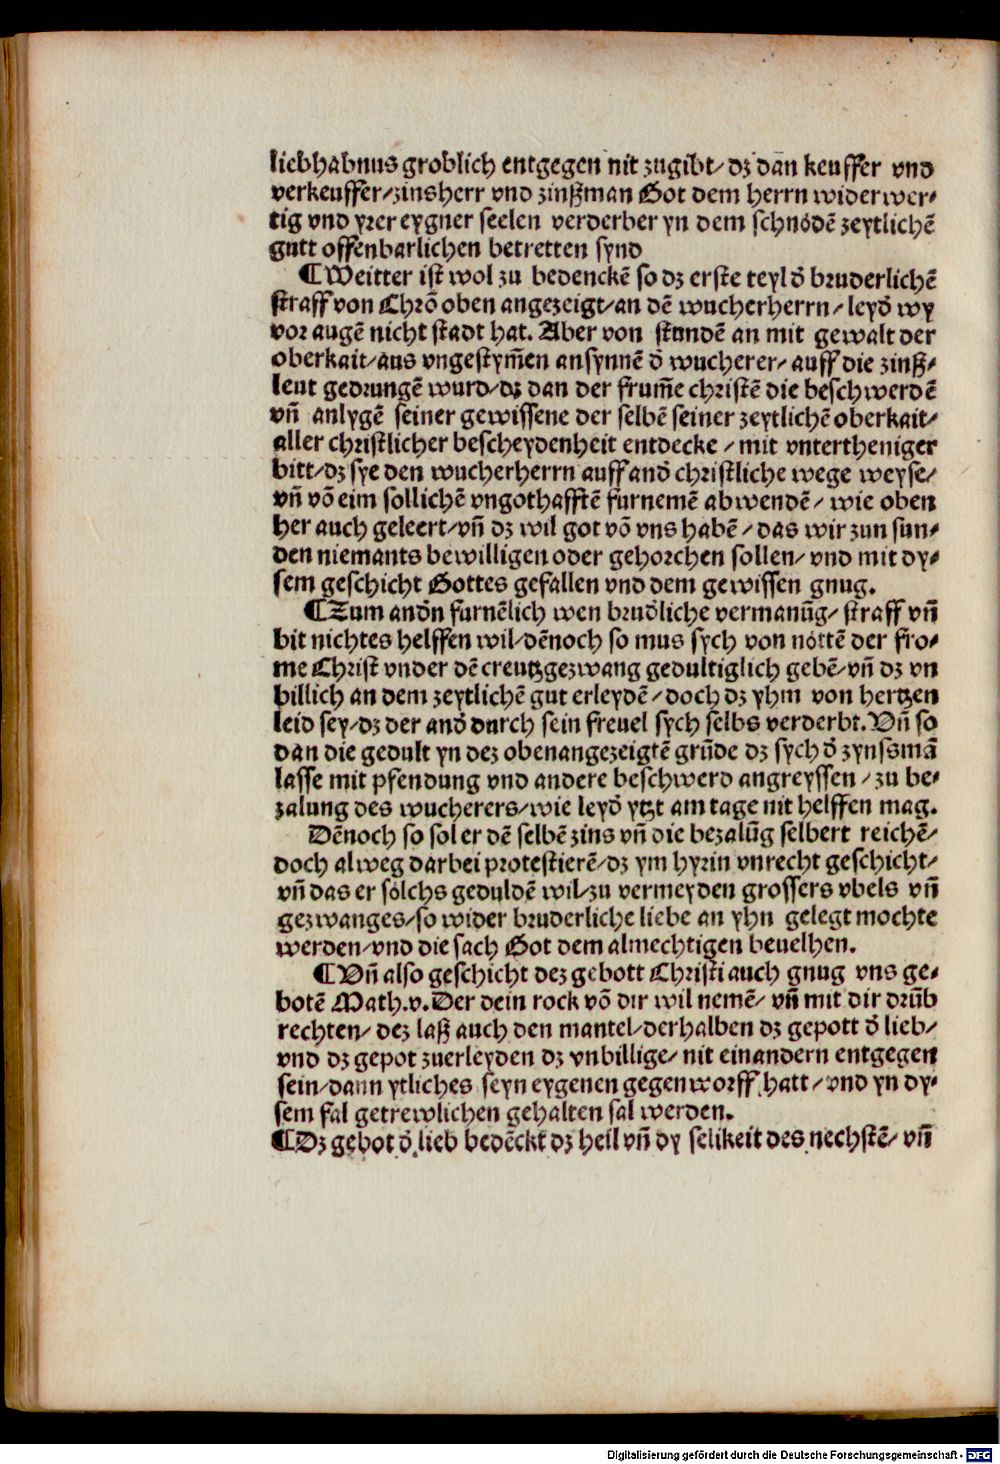 liebhabnus groblich entgegen nit zugibt/ dz dan keuffer vnd
verkeuffer/zinsherr vnd zinßman Got dem herrn widerwer⸗
tig vnd yrer eygner seelen verderber yn dem schnödē zeytlichē
gutt offenbarlichen betretten synd
¶Weitter ist wol zu bedenckē so dz erste teyl d̕ bruderlichē
straff von Chrō oben angezeigt/an dē wucherherrn/leyd̕ wy
vor augē nicht stadt hat. Aber von stundē an mit gewalt der
oberkait/aus vngestym̄en ansynnē d̕ wucherer/ auff die zinß⸗
leut gedrungē wurd/dz dan der frum̄e christē die beschwerdē
vn̄ anlygē seiner gewissene der selbē seiner zeytlichē oberkait/
aller christlicher bescheydenheit entdecke / mit vntertheniger
bitt/dz sye den wucherherrn auff and̕ christliche wege weyse/
vn̄ vō eim sollichē vngothafftē furnemē abwendē/ wie oben
her auch geleert/vn̄ dz wil got vō vns habē / das wir zun sun⸗
den niemants bewilligen oder gehorchen sollen/ vnd mit dy⸗
sem geschicht Gottes gefallen vnd dem gewissen gnug.
¶Zum and̕n furnēlich wen brud̕liche vermanūg/ straff vn̄
bit nichtes helffen wil/dēnoch so mus sych von nöttē der fro⸗
me Christ vnder dē creutzgezwang gedultiglich gebē/vn̄ dz vn
billich an dem zeytlichē gut erleydē/doch dz yhm von hertzen
leid sey/dz der and̕ durch sein freuel sych selbs verderbt. Vn̄ so
dan die gedult yn dez obenangezeigtē grūde dz sych d̕ zynssmā
lasse mit pfendung vnd andere beschwerd angreyssen / zu be⸗
zalung des wucherers/wie leyd̕ ytzt am tage nit helffen mag.
Dēnoch so sol er dē selbē zins vn̄ die bezalūg selbert reichē/
doch alweg darbei protestierē/dz ym hyrin vnrecht geschicht/
vn̄ das er sölchs geduldē wil/zu vermeyden grossers vbels vn̄
gezwanges/so wider bruderliche liebe an yhn gelegt mochte
werden/vnd die sach Got dem almechtigen beuelhen.
¶Vn̄ also geschicht dez gebott Christi auch gnug vns ge⸗
botē Math.v. Der dein rock vō dir wil nemē/ vn̄ mit dir drūb
rechten/ dez laß auch den mantel/derhalben dz gepott d̕ lieb/
vnd dz gepot zuerleyden dz vnbillige/ nit einandern entgegen
sein/dann ytliches seyn eygenen gegenworff hatt/vnd yn dy⸗
sem fal getrewlichen gehalten sal werden.
¶Dz gebot d̕ lieb bedēckt dz heil vn̄ dy selikeit des nechstē/ vn̄
Digitalisierung gefördert durch die Deutsche Forschungsgemeinschaft - DFG